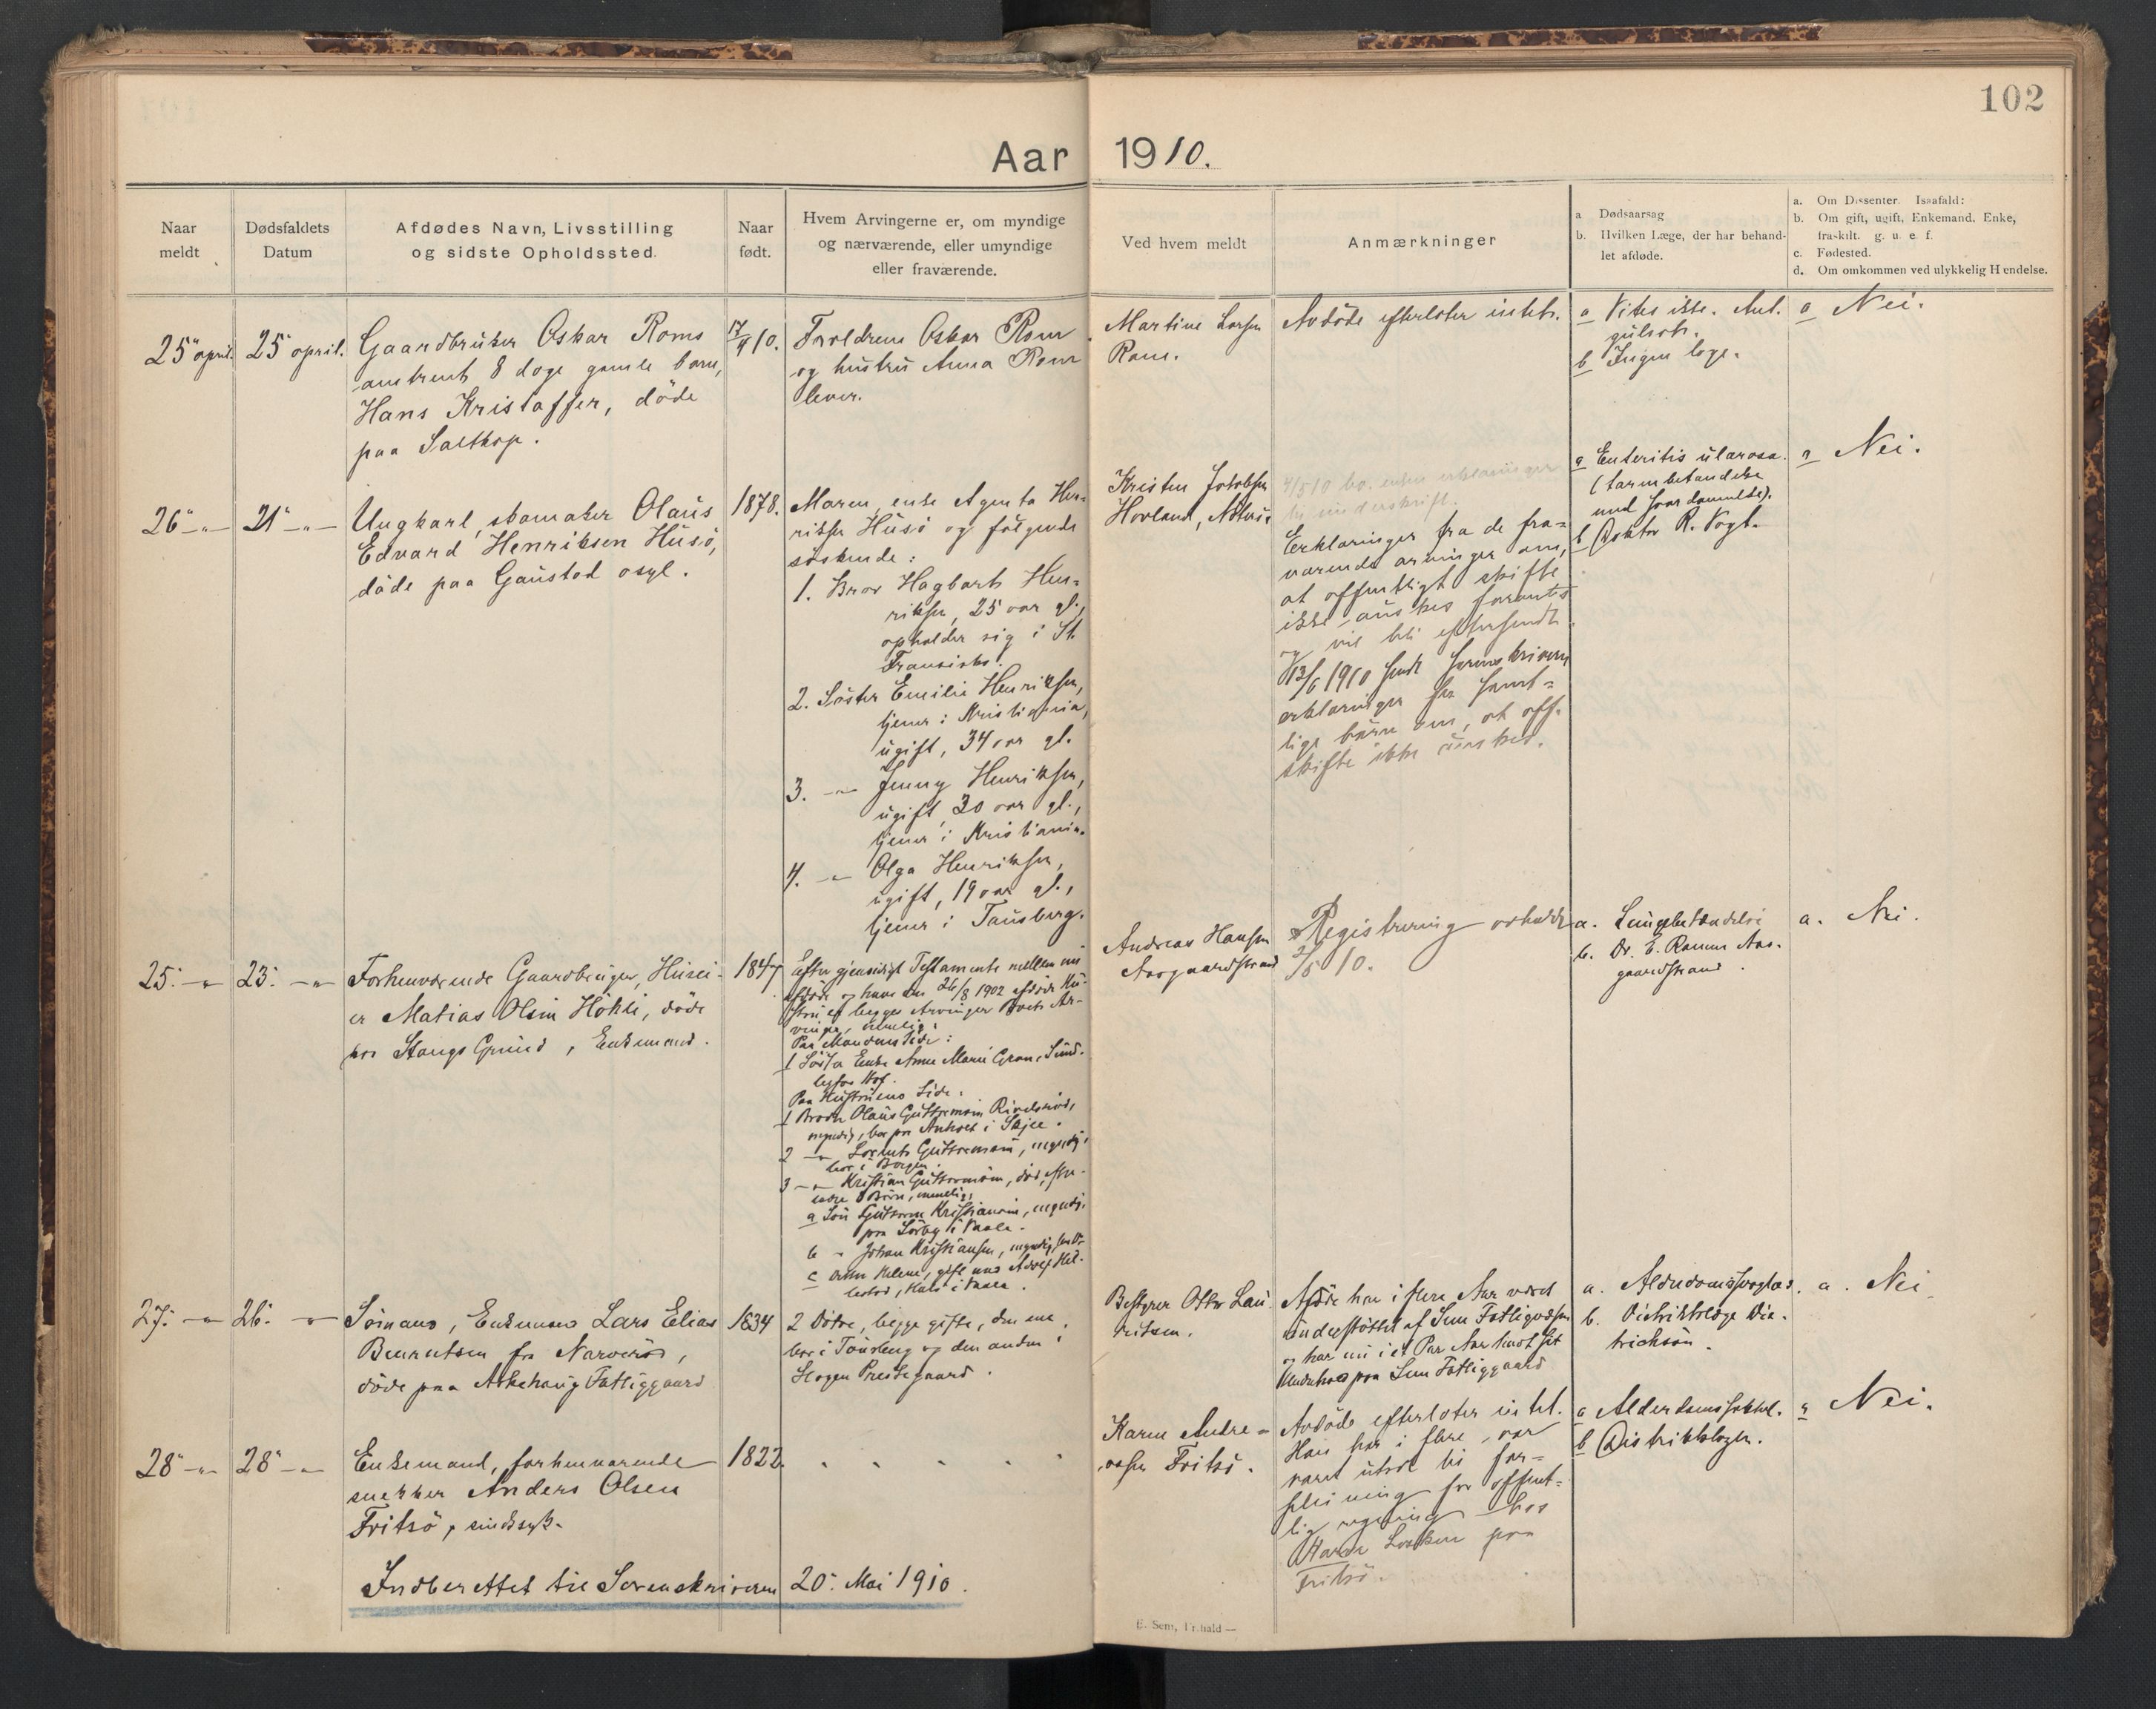 102
Aar 1910.
Naar
meldt
Dødsfaldets
Datum
Afdødes Navn, Livsstilling
og sidste Opholdssted.
Naar
født.
Hvem Arvingerne er, om myndige
og nærværende, eller umyndige
eller fraværende.
Ved hvem meldt
Anmærkninger
a Dødsaarsag
b. Hvilken Læge, der har behand-
let afdøde.
a. Om Dissenter. Isaafald:
b. Om gift, ugift, Enkemand, Enke,
fraskilt. g. u. e. f.
c. Fødested.
d. Om omkommen ved ulykkelig Hendelse.
25" april. 25" april.
Gaardbruker Oskar Roms
omtrent 8 dage gamle barn,
Hans Kristoffer, döde
paa Saltkop.
17/4 10.
Foreldrene Oskar Rom
og hustru Anna Rom
lever.
Martine Larsen
Rom.
Avdöde efterlater intet.
a Vites ikke. Ant.
gulsot.
b Ingen læge.
a Nei.
26" -"- 21" -"-
Ungkarl, skomaker Olaus
Edvard Henriksen Husö,
döde paa Gaustad asyl.
1878.
Moren, enke Agenta Hen-
riksen Husö og følgende
søskende:
1. Bror Hagbart Hen-
riksen, 25 aar gl.,
opholder sig i St.
Fransisko.
2. Søster Emilie Henriksen,
tjener i Kristiania,
ugift, 34 aar gl.
3. -"- Jenny Henriksen,
ugift, 30 aar gl.,
tjener i Kristiania.
4. -"- Olga Henriksen,
ugift, 19 aar gl.,
tjener i Tønsberg.
Kristen Jakobsen
Hovland, Nøterö
4/5 10 bo. enken erklæringer
til underskrift.
Erklæringer fra de fra-
værende arvinger om,
at offentligt skifte
ikke önskes foretat
og vil bli eftersendt.
13/6 1910 sendt sorenskriveren
erklæringer fra samt-
lige børn om, at off.
skifte ikke önskes.
a Enteritis ulcerosa.
(tarmbetændelse
med saardannelse).
b Doktor R. Vogt.
a Nei.
25. -"- 23. -"-
Forhenværende Gaardbruger, Husei-
er Matias Olsen Hökli, döde
paa Stangs Grund, Enkemand.
1847
Efter gjensidigt Testamente mellem nu
afdöde og hans den 26/8 1902 afdöde Hu-
stru er begges Arvinger Boets Ar-
vinger, nemlig:
Paa Mandens Side:
1 Søster Enke Anne Marie Gran, Sund-
byfos Hof.
Paa Hustruens Side:
1 Broder Olaus Guttormsen Rivelsrød,
myndig, bor paa Ankvet i Skjee.
2 -"- Lorents Guttormsen, myndig,
bor i Borgen.
3 -"- Kristian Guttormsen, död, efter-
lader 3 Börn, nemlig:
a Sön Guttorm Kristiansen, myndig,
paa Sörby i Vaale.
b " Johan Kristiansen, myndig,
c Datter Helene, gift med Adolf
i Vaale.
Andreas Hansen
Aasgaardstrand
Registrering avholdt
2/5 10.
a. Lungebetændelse
b. Dr. E. Aas-
gaardstrand.
a. Nei.
27. -"- 26. -"-
Sömand, Enkemand Lars Elias
Berntsen fra Narverød,
döde paa Askehaug Fattiggaard
1834
2 Døtre, begge gifte, den ene
bor i Tönsberg og den anden i
Hogen Prestegaard.
Bestyrer Otto Lau-
ritsen.
Afdöde har i flere Aar været
understöttet af Sem Fattigvæsen
og har nu i et Par Aar havt sit
Underhold paa Sem Fattiggaard
a. Alderdomssvaghed.
b. Distriktslæge Die-
trichson.
a. Nei.
28" -"- 28" -"-
Enkemand, forhenværende
snekker Anders Olsen
Fritsö, sindssyk.
1822.
Karen Andre-
assen Fritsö.
Avdöde efterlater intet.
Han har i flere aar
været utsat til for-
pleining for offent-
lig regning hos
paa
Fritsö.
a Alderdomssvakhet.
b Distriktslægen.
a Nei.
Indberettet til Sorenskriveren 20. Mai 1910.
E. Sem, Fr.hald —